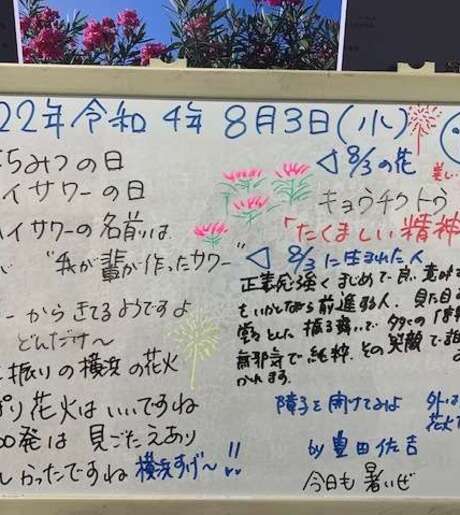 22年令和4年 8月3日(水)
ちみつの日
イサワーの日
イサワーの名前は
"我が輩が作ったサワー"
ーからきてるようですよ
どんだけ〜
振りの横浜の花火
ぱり花火はいいですね
00発は見ごたえあり
しかったですね 横浜すげ〜!!
◁8/3の花
美しい
キョウチクトウ
「たくましい精神
◁8/3に生まれた人
正義感強くまじめで良い意味
をいかしながら前進する人。見た目
とした振る舞いで多くの
無邪気で純粋。その笑顔で誰
かれます。
障子を開けてみよ 外は
花火
by 豊田佐吉
今日も暑いぜ